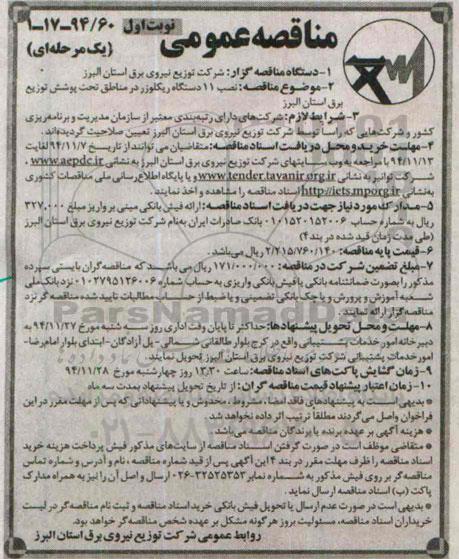 مناقصه عمومی
نوبت اول
۱-۱۷-۹۴/۶۰
(یک مرحله‌ای)
۱-دستگاه مناقصه گزار: شرکت توزیع نیروی برق استان البرز
۲-موضوع مناقصه: نصب ۱۱ دستگاه ریکلوزر در مناطق تحت پوشش توزیع
برق استان البرز
۳-شرایط لازم: شرکت‌های دارای رتبه‌بندی معتبر از سازمان مدیریت و برنامه‌ریزی
کشور و شرکت‌هایی که راسا توسط شرکت توزیع نیروی برق استان البرز تعیین صلاحیت گردیده‌اند.
۴-مهلت خرید و محل دریافت اسناد مناقصه: متقاضیان می توانند از تاریخ ۹۴/۱۱/۷ لغایت
۹۴/۱۱/۱۳ با مراجعه به وب سایتهای شرکت توزیع نیروی برق استان البرز به نشانی www.aepdc.ir ،
شرکت توانیر به نشانی www.tender.tavanir.org.ir و یا پایگاه اطلاع‌رسانی ملی مناقصات کشوری
به‌نشانی http://iets.mporg.ir اسناد مناقصه را مشاهده و اخذ نمایند.
۵-مدارک مورد نیاز جهت دریافت اسناد مناقصه: ارائه فیش بانکی مبنی بر واریز مبلغ ۳۲۷,۰۰۰
ریال به شماره حساب ۰۱۰۱۵۲۰۱۵۲۰۰۶ بانک صادرات ایران به‌نام شرکت توزیع نیروی برق استان البرز
(طی مدت زمان قید شده در بند ۴)
۶-قیمت پایه مناقصه: ۲/۲۱۵/۷۶۰/۱۴۰ ریال می‌باشد.
۷-مبلغ تضمین شرکت در مناقصه: ۱۷۱/۰۰۰/۰۰۰ ریال می باشد که مناقصه‌گران بایستی سپرده
مذکور را بصورت ضمانتنامه بانکی یا فیش بانکی واریزی به حساب شماره ۰۱۰۲۷۹۵۱۳۶۰۰۶ نزد بانک ملی
شعبه آموزش و پرورش و یا چک بانکی تضمینی و یا ضبط از حساب مطالبات تایید شده مناقصه‌گر نزد
مناقصه‌گزار ارائه نمایند.
۸-مهلت و محل تحویل پیشنهادها: حداکثر تا پایان وقت اداری روز سه شنبه مورخ ۹۴/۱۱/۲۷ به
دبیرخانه امور خدمات پشتیبانی واقع در کرج بلوار طالقانی شمالی - پل آزادگان - ابتدای بلوار امام‌رضا-
امور خدمات پشتیبانی شرکت توزیع نیروی برق استان البرز تحویل نمایند.
۹-زمان گشایش پاکت‌های اسناد مناقصه: ساعت ۱۳:۳۰ روز چهارشنبه مورخ ۹۴/۱۱/۲۸
۱۰-زمان اعتبار پیشنهاد قیمت مناقصه گران: از تاریخ تحویل پیشنهاد بمدت سه ماه
* بدیهی است به پیشنهادهای فاقد امضا، مشروط، مخدوش و یا پیشنهاداتی که پس از مهلت مقرر در این
فراخوان واصل می‌گردند مطلقا ترتیب اثر داده نخواهد شد.
* هزینه آگهی بر عهده برنده یا برندگان مناقصه می‌باشد.
* متقاضی موظف است در صورت گرفتن اسناد مناقصه از سایت‌های مذکور فیش پرداخت هزینه خرید
اسناد مناقصه را ظرف مهلت مقرر در بند ۴ این آگهی پس از قید شماره مناقصه، نام و آدرس و شماره تماس
مناقصه‌گر بر روی فیش مذکور به شماره نمابر ۳۲۵۲۵۳۵۲-۰۲۶ ارسال و اصل آن را نیز به همراه مدارک
پاکت (ب) اسناد مناقصه ارسال نماید.
* بدیهی است در صورت عدم ارسال یا تحویل فیش بانکی خرید اسناد مناقصه و ثبت نام مناقصه‌گر در لیست
خریداران اسناد مناقصه، مسئولیت بروز هر گونه مشکل بر عهده شخص مناقصه‌گر خواهد بود.
روابط عمومی شرکت توزیع نیروی برق استان البرز
ParsNamadData